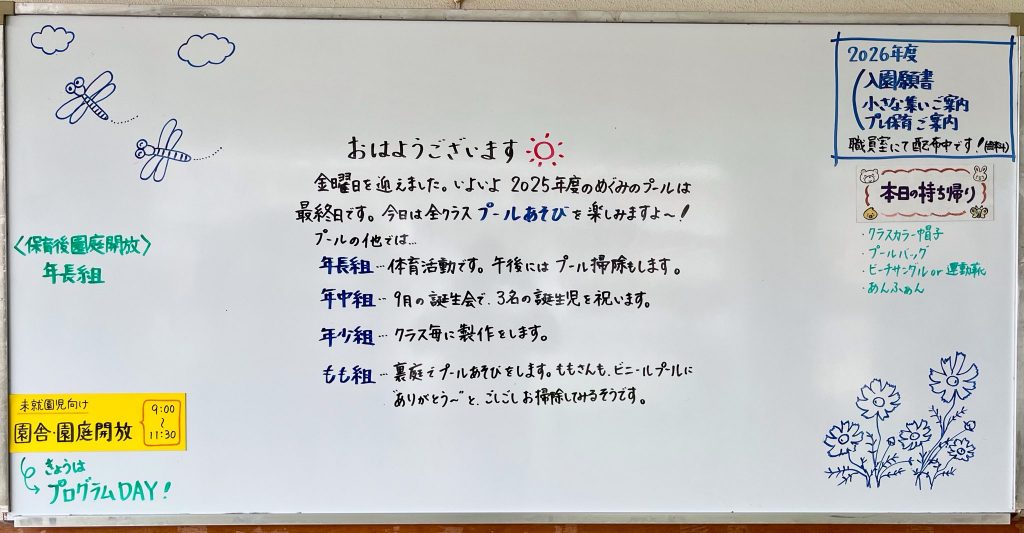 おはようございます
金曜日を迎えました。いよいよ 2025年度のめぐみのプールは
最終日です。今日は全クラス プールあそびを楽しみますよ~!
プールの他では…
年長組…体育活動です。午後には プール掃除もします。
年中組…9月の誕生会で、3名の誕生児を祝います。
年少組…クラス毎に製作をします。
もも組…裏庭でプールあそびをします。ももさんも、ビニールプールに
"ありがとう~"と、ごしごしお掃除してみるそうです。
〈保育後園庭開放〉
年長組
未就園児向け
園舎・園庭開放
9:00
~
11:30
きょうは
プログラムDAY!
2026年度
入園願書
小さな集いご案内
プレ保育ご案内
職員室にて配布中です!(無料)
本日の持ち帰り
・クラスカラー帽子
・プールバッグ
・ビーチサンダル or 運動靴
・あんふぁん